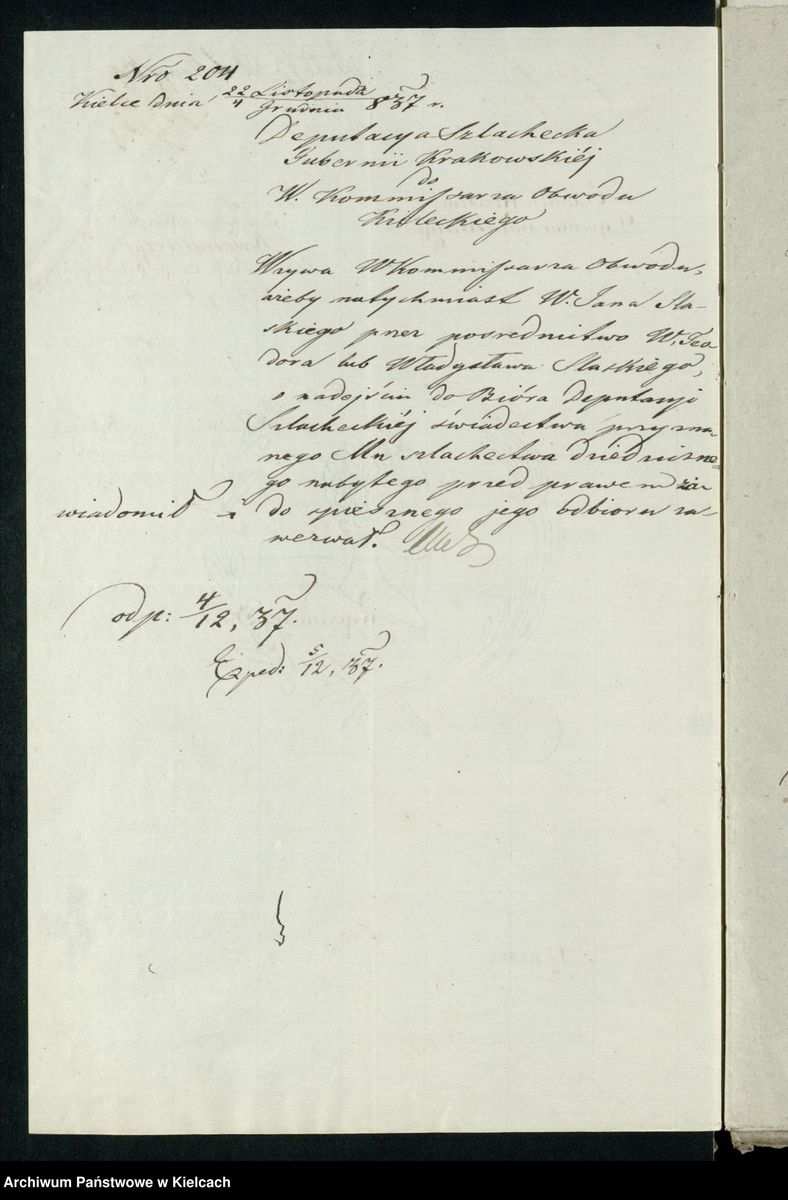 Nro 204
Kielce dnia 22 Listopada / 4 Grudnia 837 r.
Deputacya Szlachecka
Gubernii Krakowskiéj
do
W. Kommissarza Obwodu
Kieleckiego
Wzywa WKommissarza Obwodu,
ażeby natychmiast W. Jana Sla-
skiego przez pośrednictwo W. Teo
dora lub Władysława Slaskiego,
o nadejściu do Bióra Deputacyi
Szlacheckiéj świadectwa przyzna
nego Mu szlachectwa dziedziczne-
go nabytego przed prawem za-
wiadomił i do spiesznego jego odbioru za-
wezwał.
odp: 4/12, 37.
Exped: 5/12, 37.
Archiwum Państwowe w Kielcach